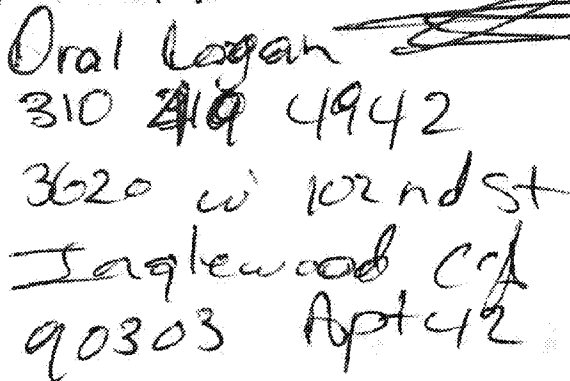 Oral Logan
310 419 4942
3620 w 102nd St
Inglewood Ca
90303 Apt 42